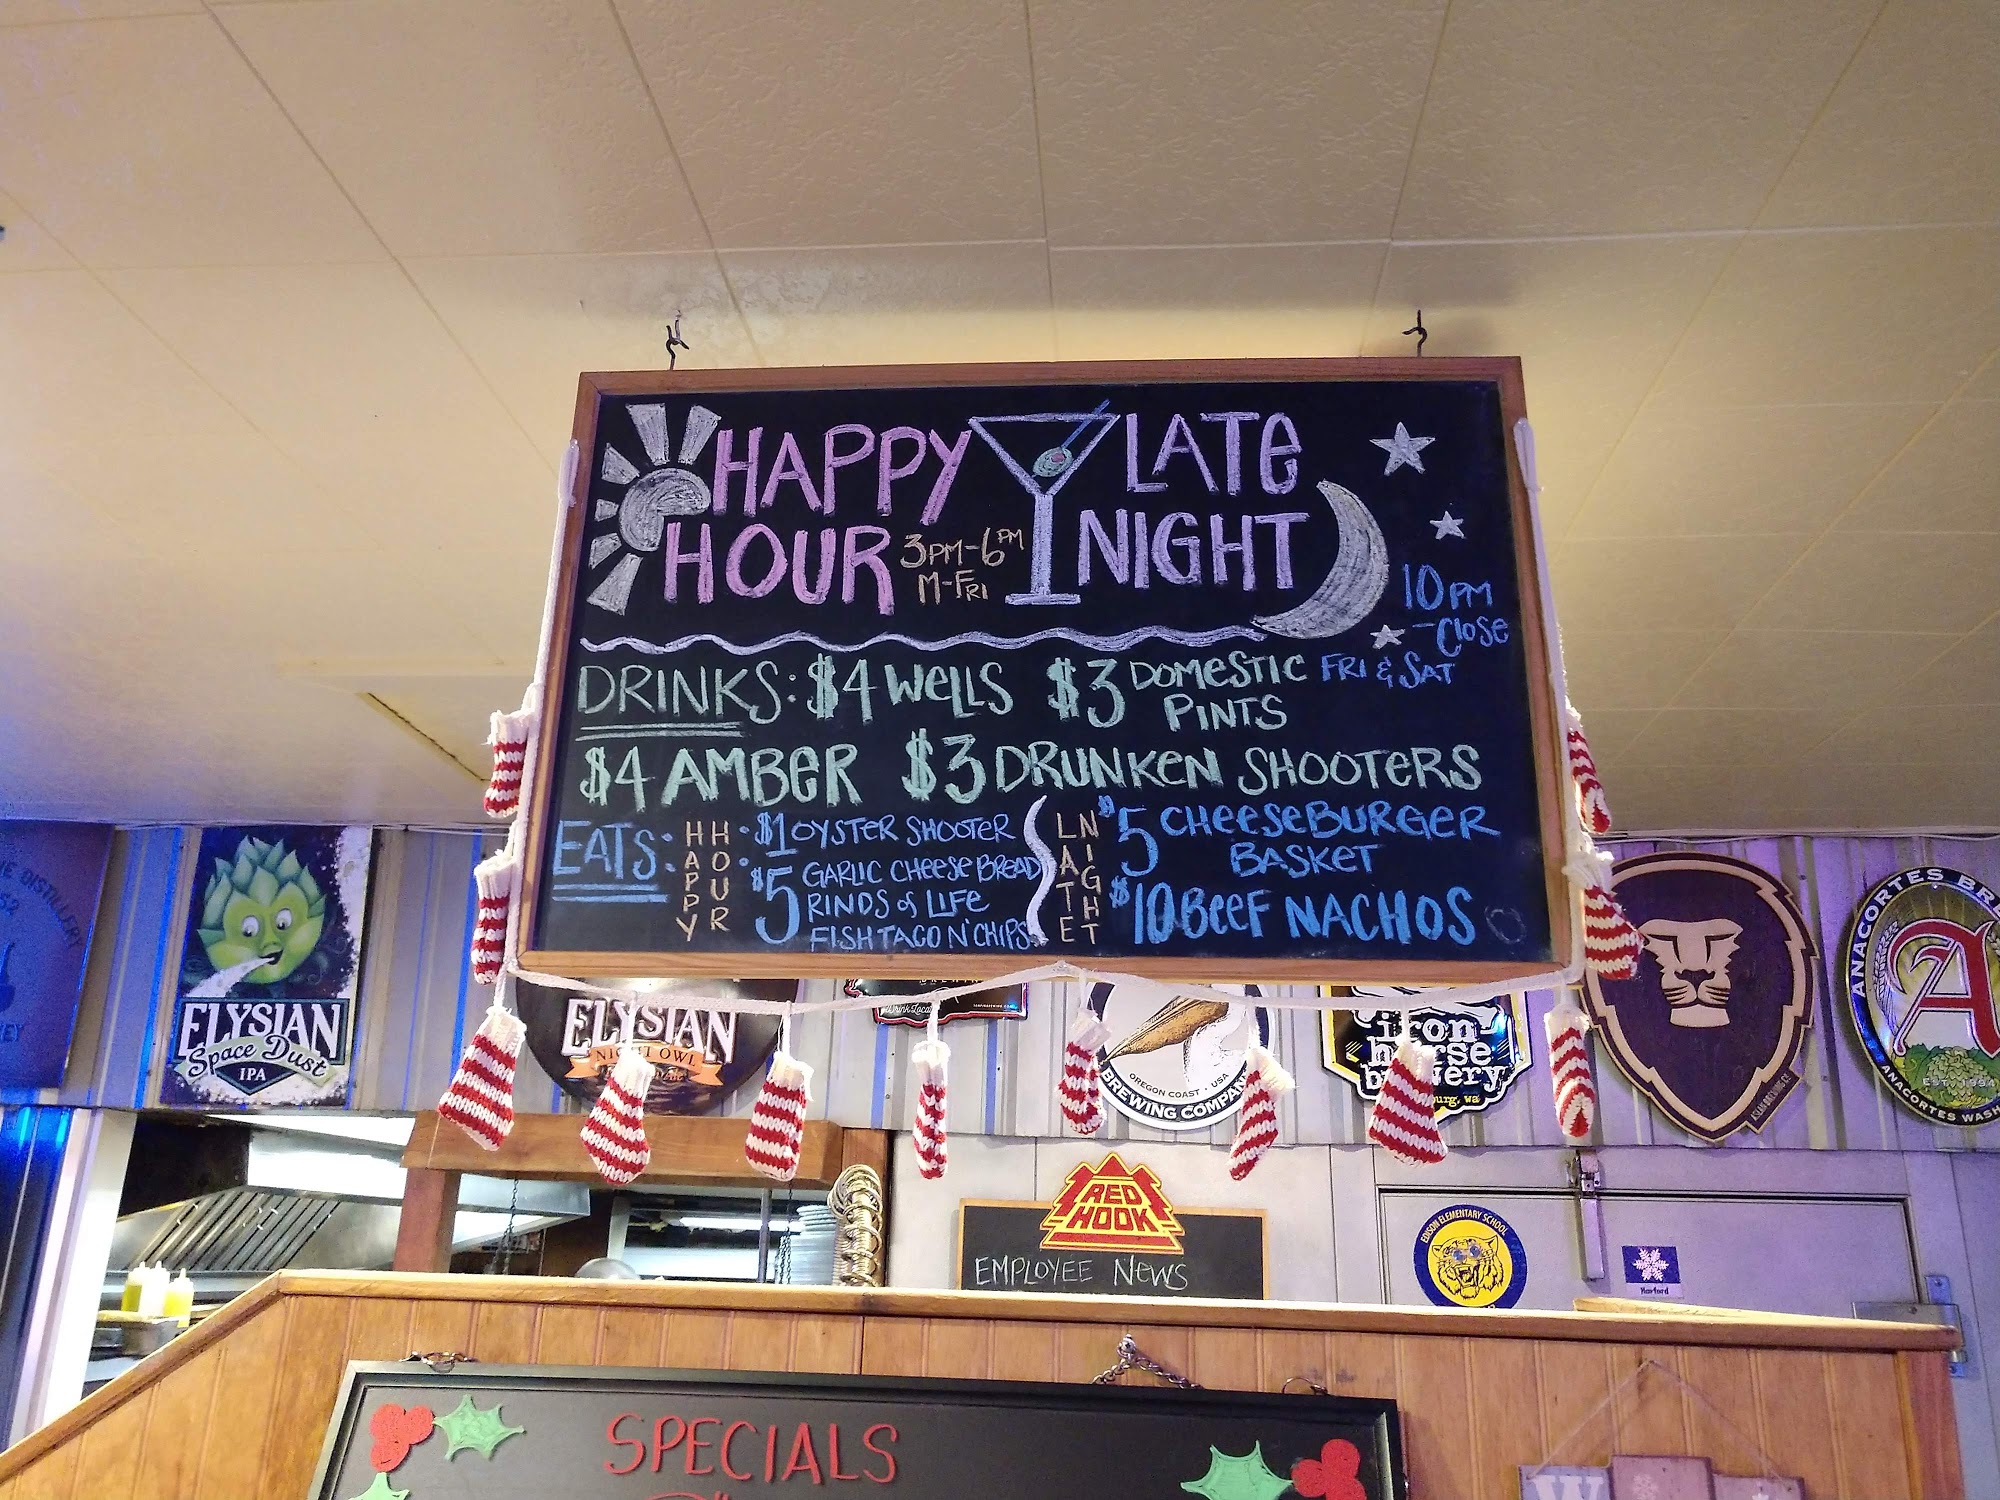 HAPPY
HOUR
3PM-6PM
M-FRI
LATE
NIGHT
10PM
-Close
FRI & SAT
DRINKS: $4 WELLS $3 DOMESTIC PINTS
$4 AMBER $3 DRUNKEN SHOOTERS
EATS:
HAPPY HOUR
$1 OYSTER SHOOTER
$5 GARLIC CHEESE BREAD
RINDS of LIFE
FISH TACO N' CHIPS
LATE NIGHT
$5 CHEESEBURGER
BASKET
$10 BEEF NACHOS
DISTILLERY
ELYSIAN
Space Dust
IPA
ELYSIAN
NIGHT OWL
Drink Local
OREGON COAST · USA
BREWING COMPANY
iron
horse
brewery
ANACORTES
A
EST. 1994
ANACORTES
RED
HOOK
EMPLOYEE NEWS
EDISON ELEMENTARY SCHOOL
SPECIALS
W